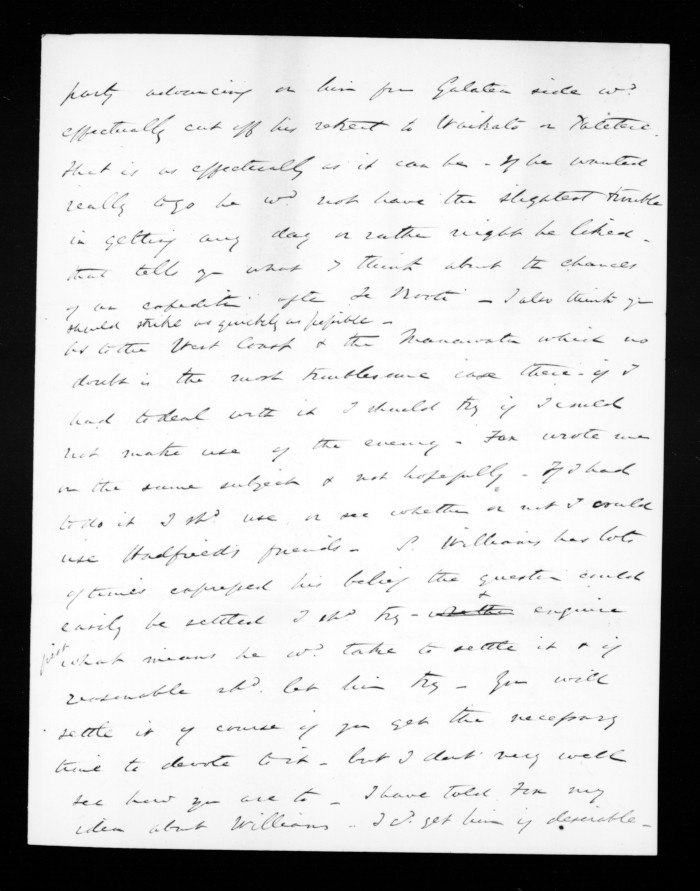 party advancing on him from Galatea side wd.
effectually cut off his retreat to Waikato or Patetere.
that is as effectually as it can be - If he wanted
really to go he wd. not have the slightest trouble
in getting any day or rather night he liked -
that tells you what I think about the chances
of an expedition after Te Kooti - I also think you
should strike as quickly as possible -
As to the West Coast & the Manawatu which no
doubt is the most troublesome case there - if I
had to deal with it I should try if I could
not make use of the enemy - Fox wrote me
on the same subject & not hopefully - If I had
to do it I shd. use or see whether or not I could
use Hadfield's friends - S. Williams has lots
of times expressed his belief the question could
easily be settled I shd. try - & enquire
first what means he wd. take to settle it & if
reasonable shd. let him try - You will
settle it of course if you get the necessary
time to devote to it - but I dont very well
see how you are to - I have told Fox my
idea about Williams - I cd. get him if desirable -